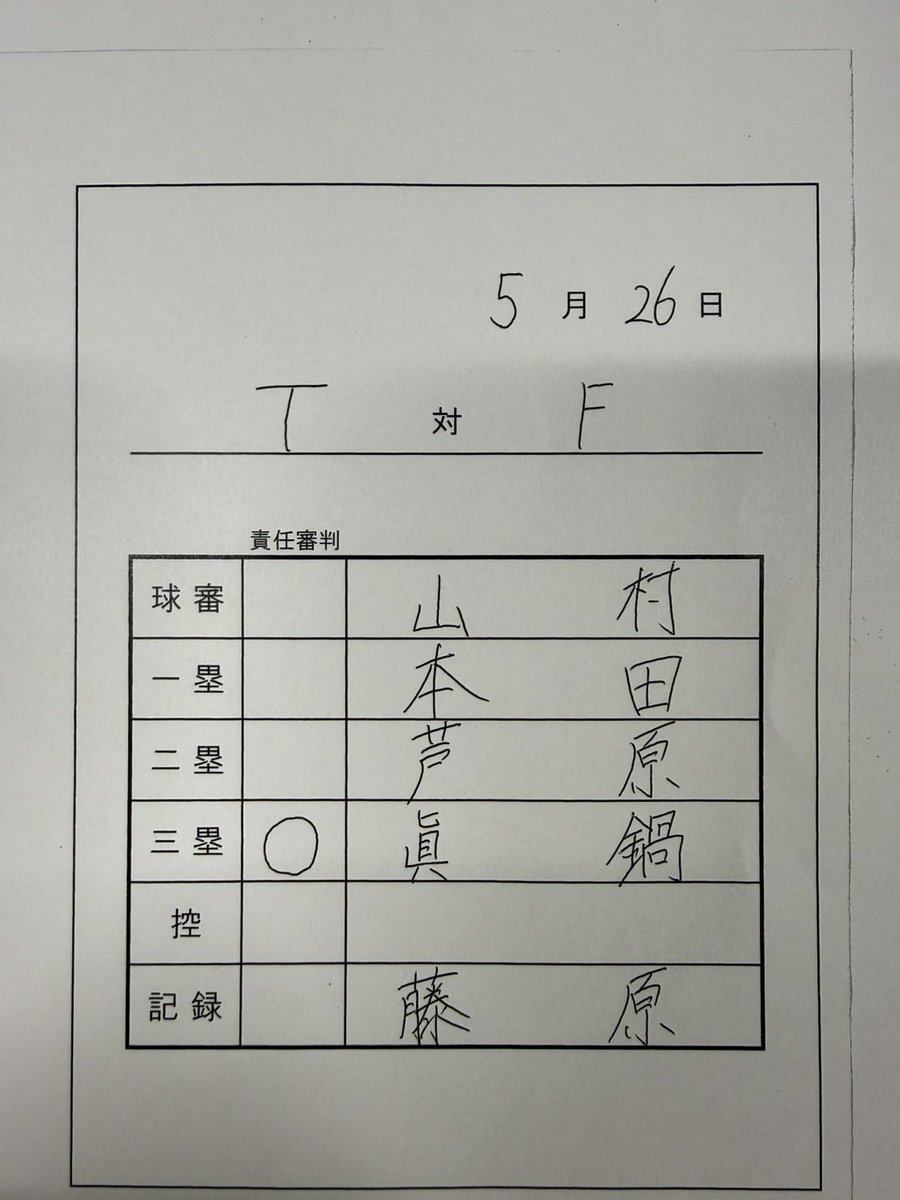 5月26日
T 対 F
責任審判
球審 山村
一塁 本田
二塁 芦原
三塁 ○ 眞鍋
控
記録 藤原